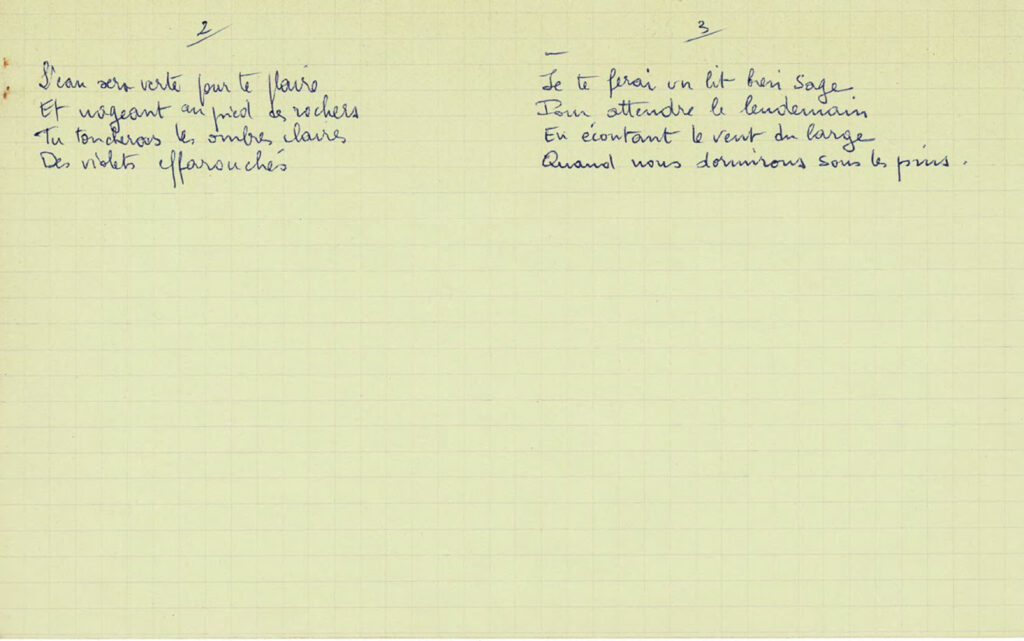 2
L'eau sera verte pour te plaire
Et nageant au pied des rochers
Tu toucheras les ombres claires
Des violets effarouchés
3
Je te ferai un lit bien sage
Pour attendre le lendemain
En écoutant le vent du large
Quand nous dormirons sous les pins.